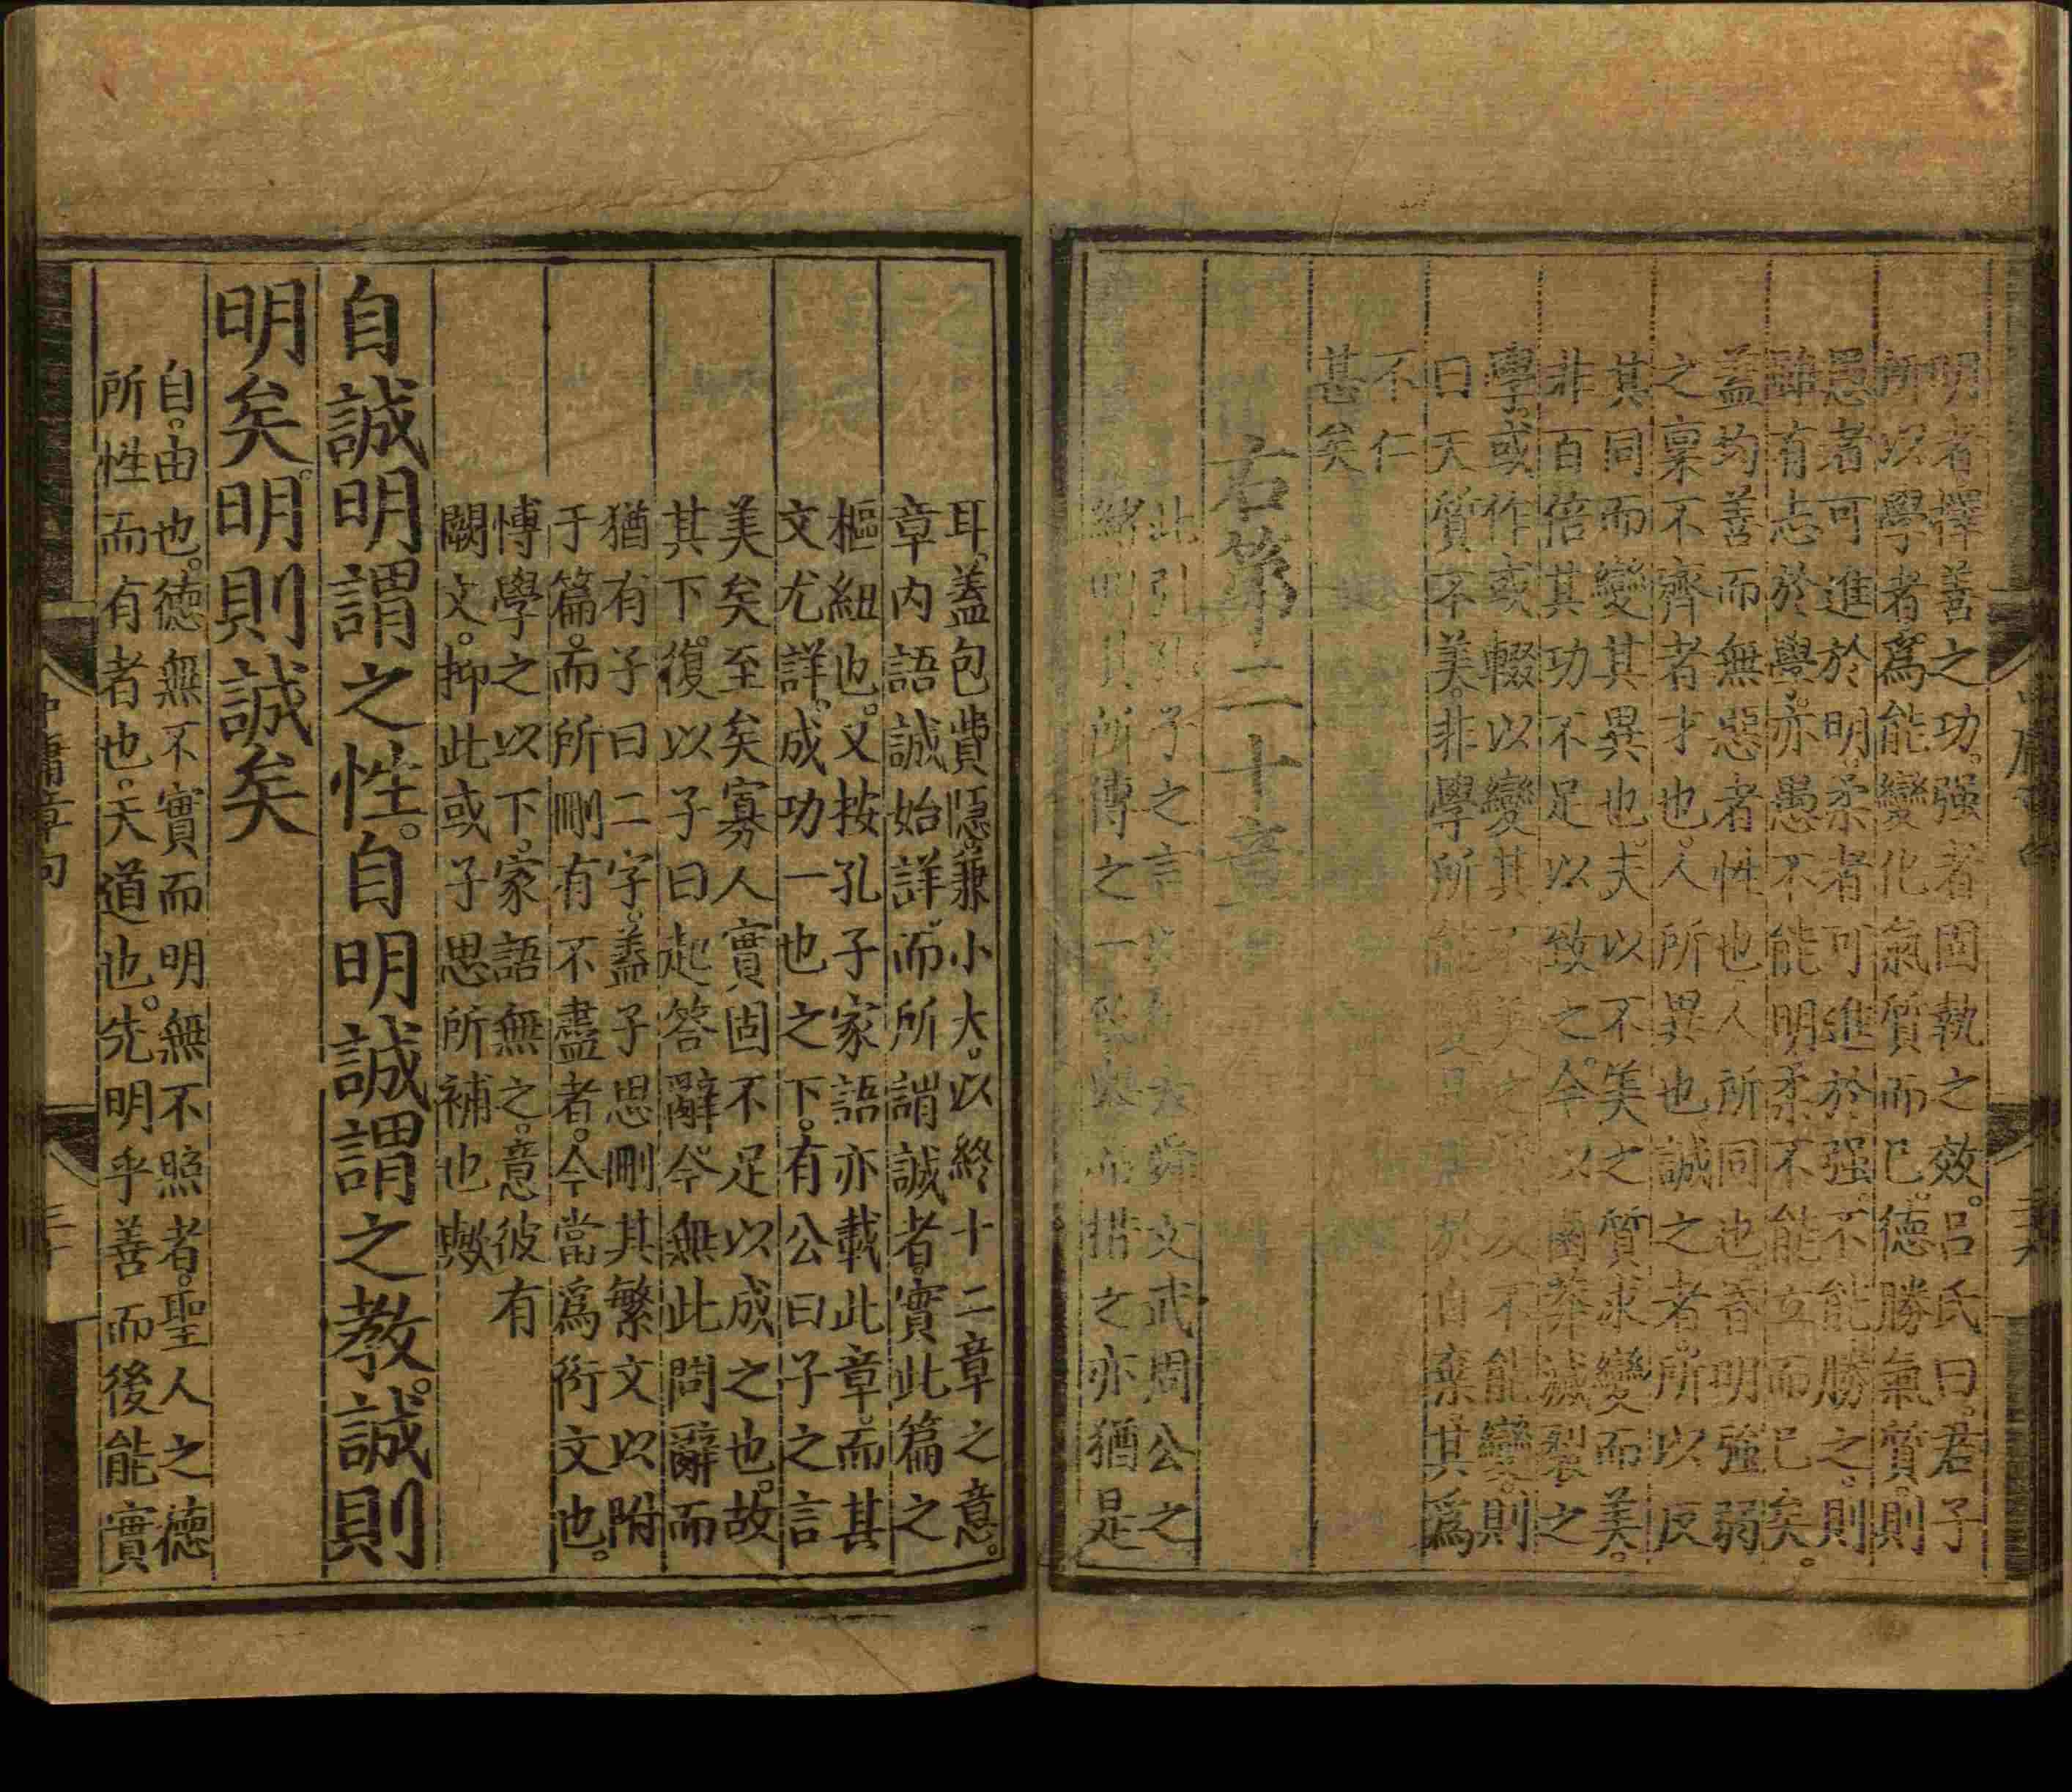 明者擇善之功。强者固執之效。呂氏曰。君子
所以學者。爲能變化氣質而已。德勝氣質。則
愚者可進於明。柔者可進於强。不能勝之。則
雖有志於學。亦愚不能明。柔不能立而已矣。
蓋均善而無惡者性也。人所同也。昏明強弱
之稟不齊者才也。人所異也。誠之者。所以反
其同而變其異也。夫以不美之質。求變而美。
非百倍其功。不足以致之。今以鹵莽滅裂之
學。或作或輟。以變其不美之質。及不能變。則
曰天質不美。非學所能變。是果於自棄。其爲
不仁
甚矣
右第二十章
此引孔子之言。以繼大舜文武周公之
緒。明其所傳之一致。擧而措之。亦猶是
耳。蓋包費隱。兼小大。以終十二章之意。
章内語誠始詳。而所謂誠者。實此篇之
樞紐也。又按孔子家語。亦載此章。而其
文尤詳。成功一也之下。有公曰子之言
美矣至矣寡人實固不足以成之也。故
其下。復以子曰起答辭。今無此問辭。而
猶有子曰二字。蓋子思刪其繁文。以附
于篇。而所刪有不盡者。今當爲衍文也。
博學之以下。家語無之。意彼有
闕文。抑此或子思所補也歟
自誠明謂之性。自明誠謂之教。誠則
明矣。明則誠矣
自。由也。德無不實而明無不照者。聖人之德
所性而有者也。天道也。先明乎善而後能實
中庸章句
三十